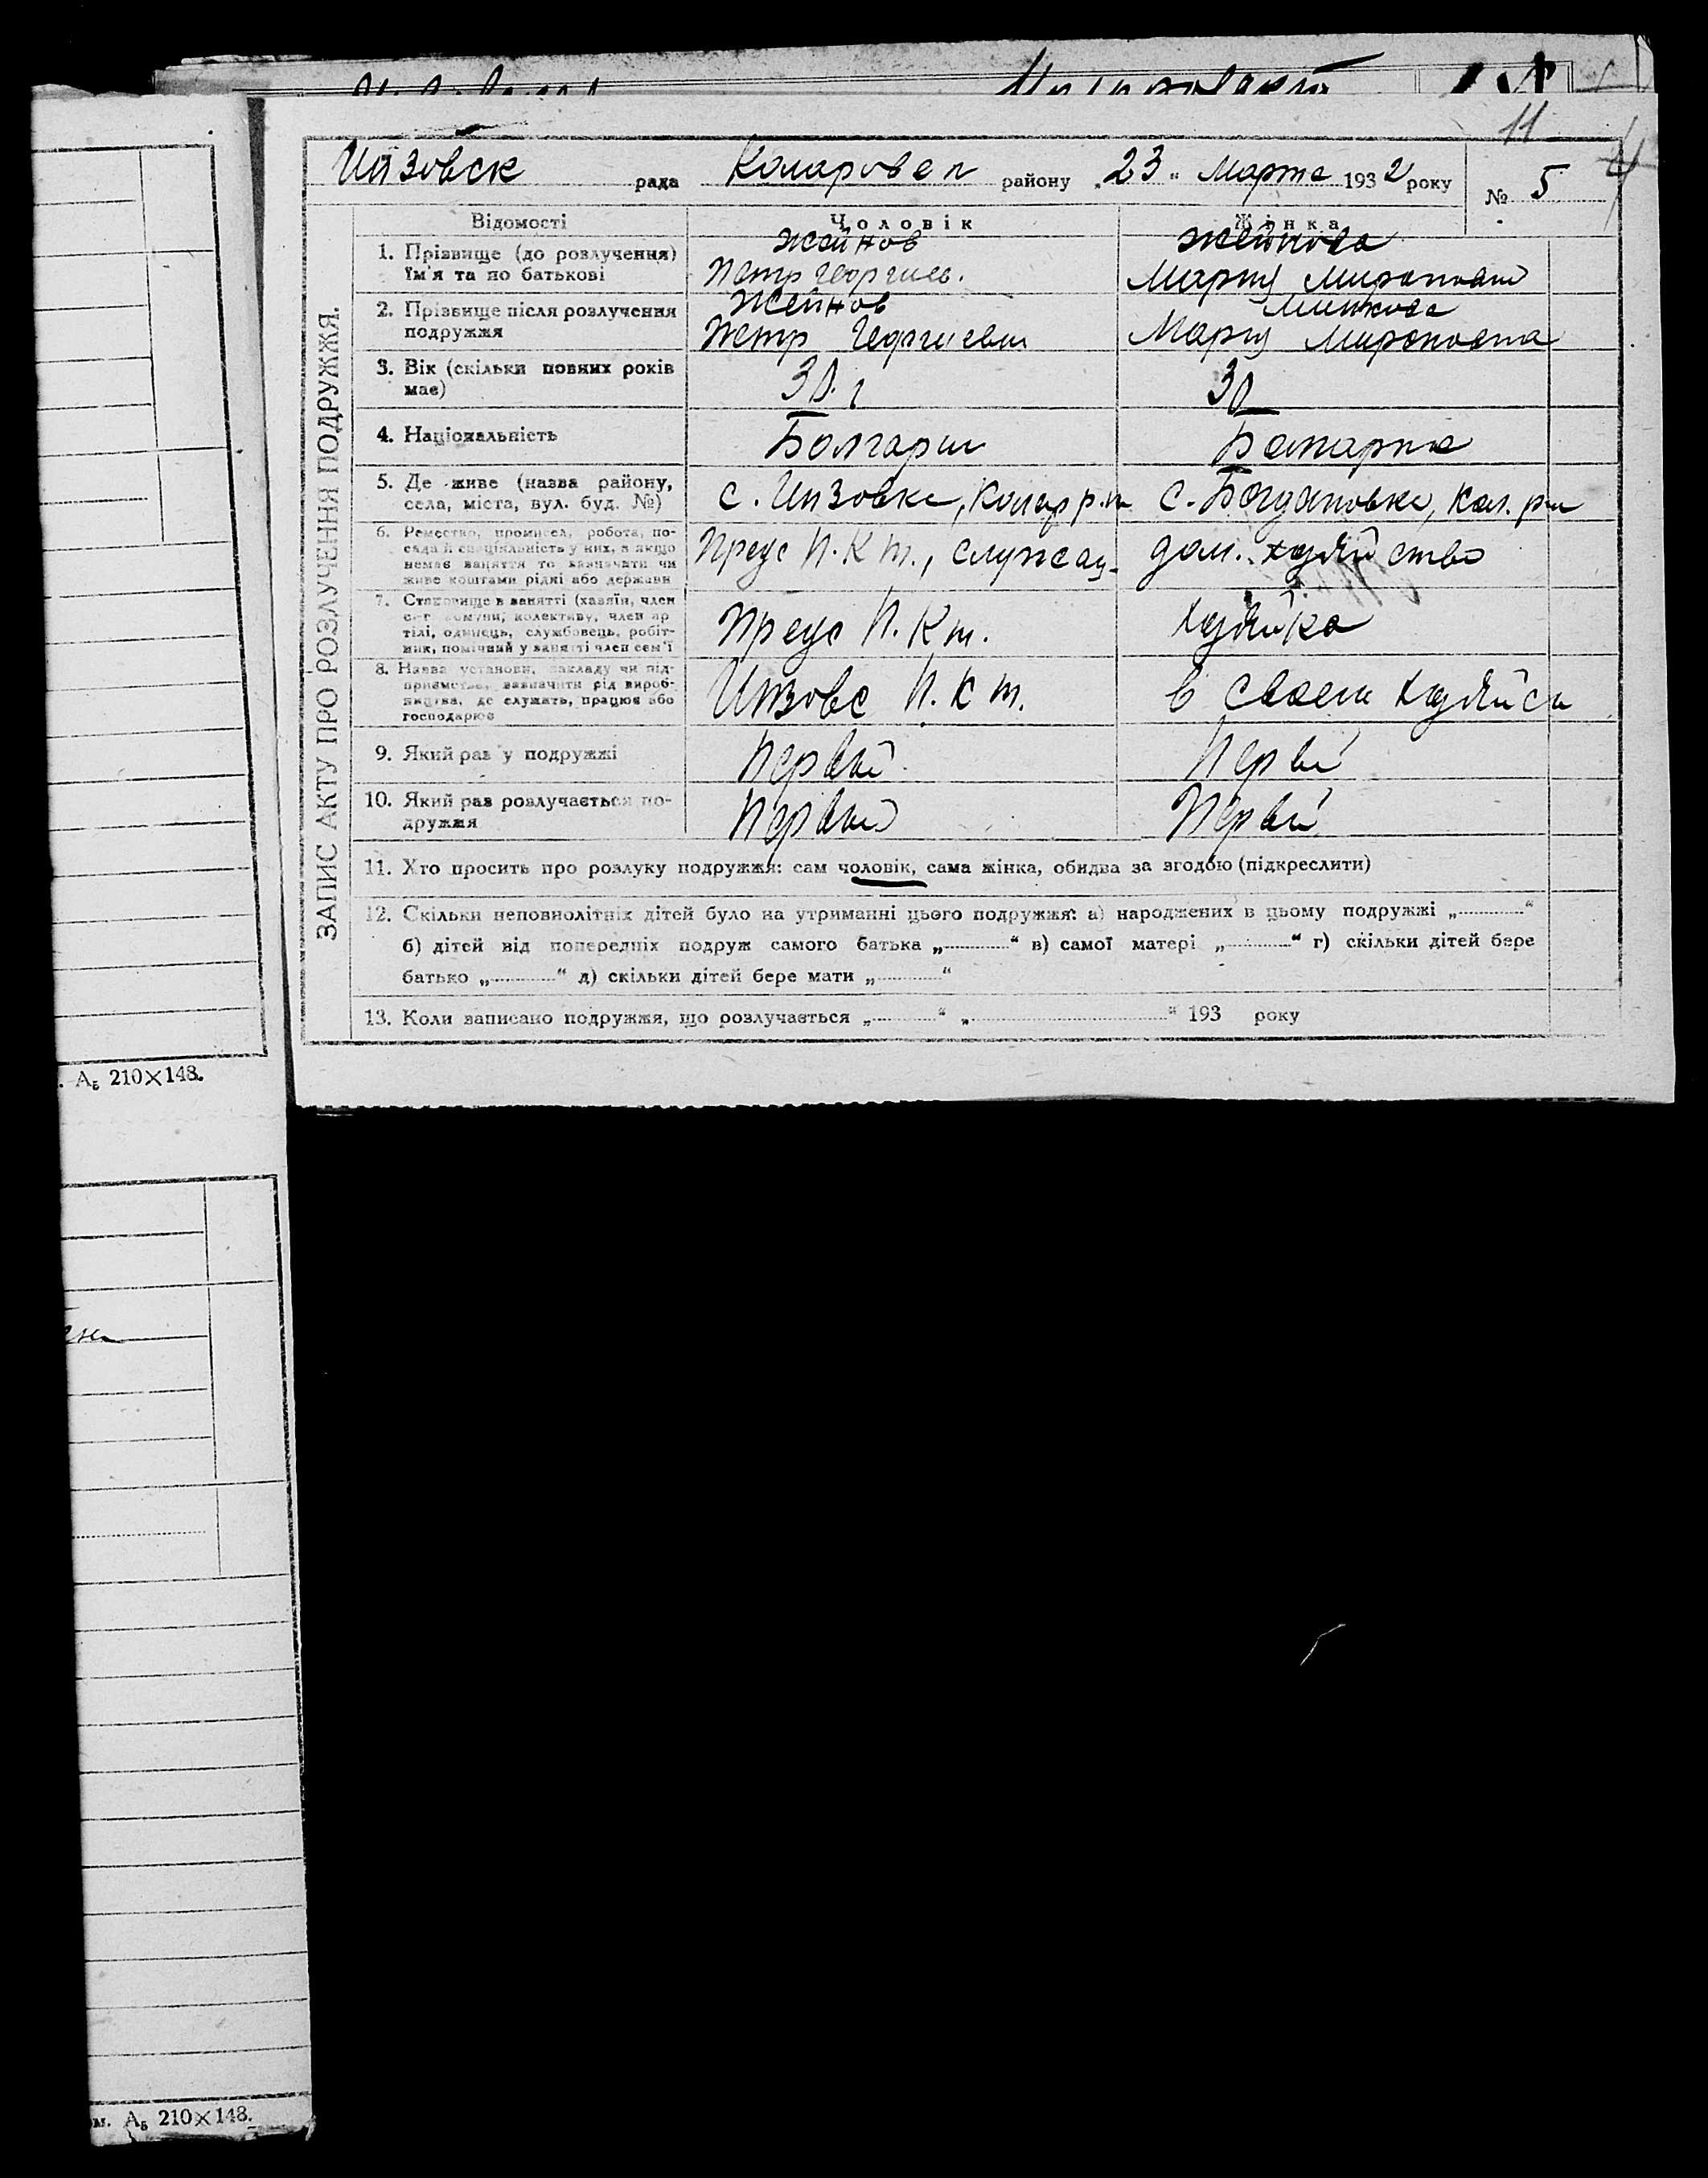 11
Инзовск рада Коларовск району „23“ Марта 1932 року № 5
ЗАПИС АКТУ ПРО РОЗЛУЧЕННЯ ПОДРУЖЖЯ.
Відомості Чоловік Жінка
1. Прізвище (до розлучення) Жейнов Жейнова
їм'я та по батькові Петр Георгиев. Мария
2. Прізвище після розлучення Жейнов Минкова
подружжя Петр Георгиевич Мария
3. Вік (скільки повних років 30 г 30
має)
4. Національність Болгарин Болгарка
5. Де живе (назва району, с. Инзовка, Колар р-н с. Богдановка, Кол. р-н
села, міста, вул. буд. №)
6. Ремество, промисел, робота, по- Предс П.К.Т., служащ- дом. хозяйство
сада й спеціяльність у них, а якщо
немає заняття то зазначати чи
живе коштами рідні або держави
7. Становище в занятті (хазяїн, член Предс П.К.Т. Хозяйка
с-г комуни, колективу, член ар
тілі, одинець, службовець, робіт-
ник, помічний у занятті член сем'ї
8. Назва установи, закладу чи під- Инзовс П.К.Т. в своем хозяйст
приємства, зазначити рід вироб-
ництва, де служить, працює або
господарює
9. Який раз у подружжі Первый Первый
10. Який раз розлучається по- Первый Первый
дружжя
11. Хто просить про розлуку подружжя: сам чоловік, сама жінка, обидва за згодою (підкреслити)
12. Скільки неповнолітніх дітей було на утриманні цього подружжя: а) народжених в цьому подружжі „............“
б) дітей від попередніх подруж самого батька „............“ в) самої матері „............“ г) скільки дітей бере
батько „............“ д) скільки дітей бере мати „............“
13. Коли записано подружжя, що розлучається „............“ „............“ 193 року
. А₅ 210×148.
м. А₅ 210×148.